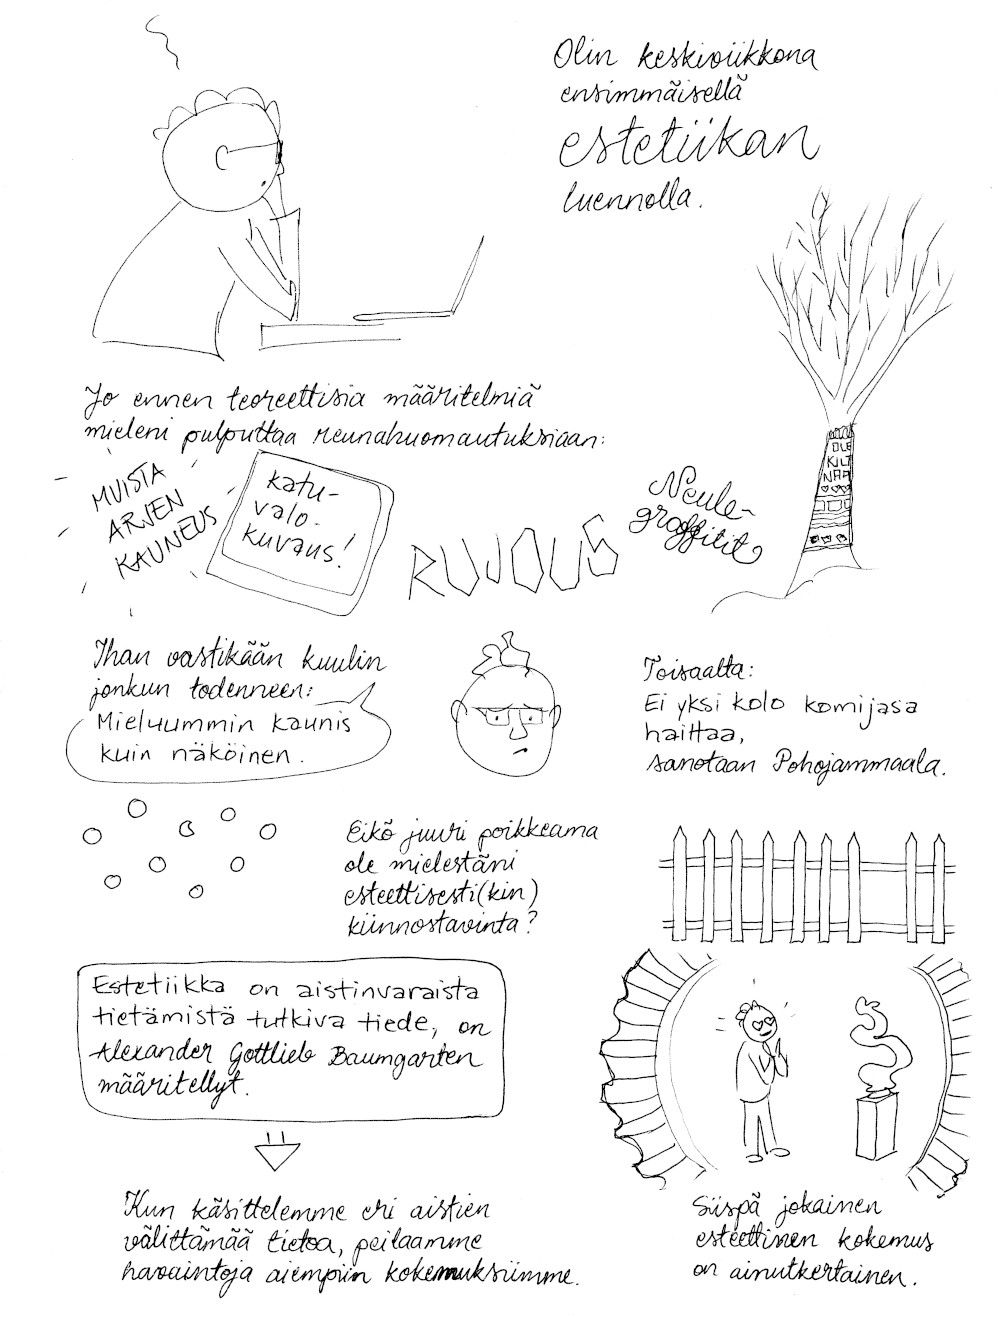 Olin keskiviikkona
ensimmäisellä
estetiikan
luennolla.
Jo ennen teoreettisia määritelmiä
mieleni pulputtaa reunahuomautuksiaan:
MUISTA
ARJEN
KAUNEUS
katu-
valo-
kuvaus!
RUJOUS
Neule-
graffitit
OLE
KILT
NAA
Ihan vastikään kuulin
jonkun todenneen:
Mieluummin kaunis
kuin näköinen.
Toisaalta:
Ei yksi kolo komijasa
haittaa,
sanotaan Pohojammaala.
Eikö juuri poikkeama
ole mielestäni
esteettisesti(kin)
kiinnostavinta?
Estetiikka on aistinvaraista
tietämistä tutkiva tiede, on
Alexander Gottlieb Baumgarten
määritellyt.
Kun käsittelemme eri aistien
välittämää tietoa, peilaamme
havaintoja aiempiin kokemuksiimme.
Siispä jokainen
esteettinen kokemus
on ainutkertainen.